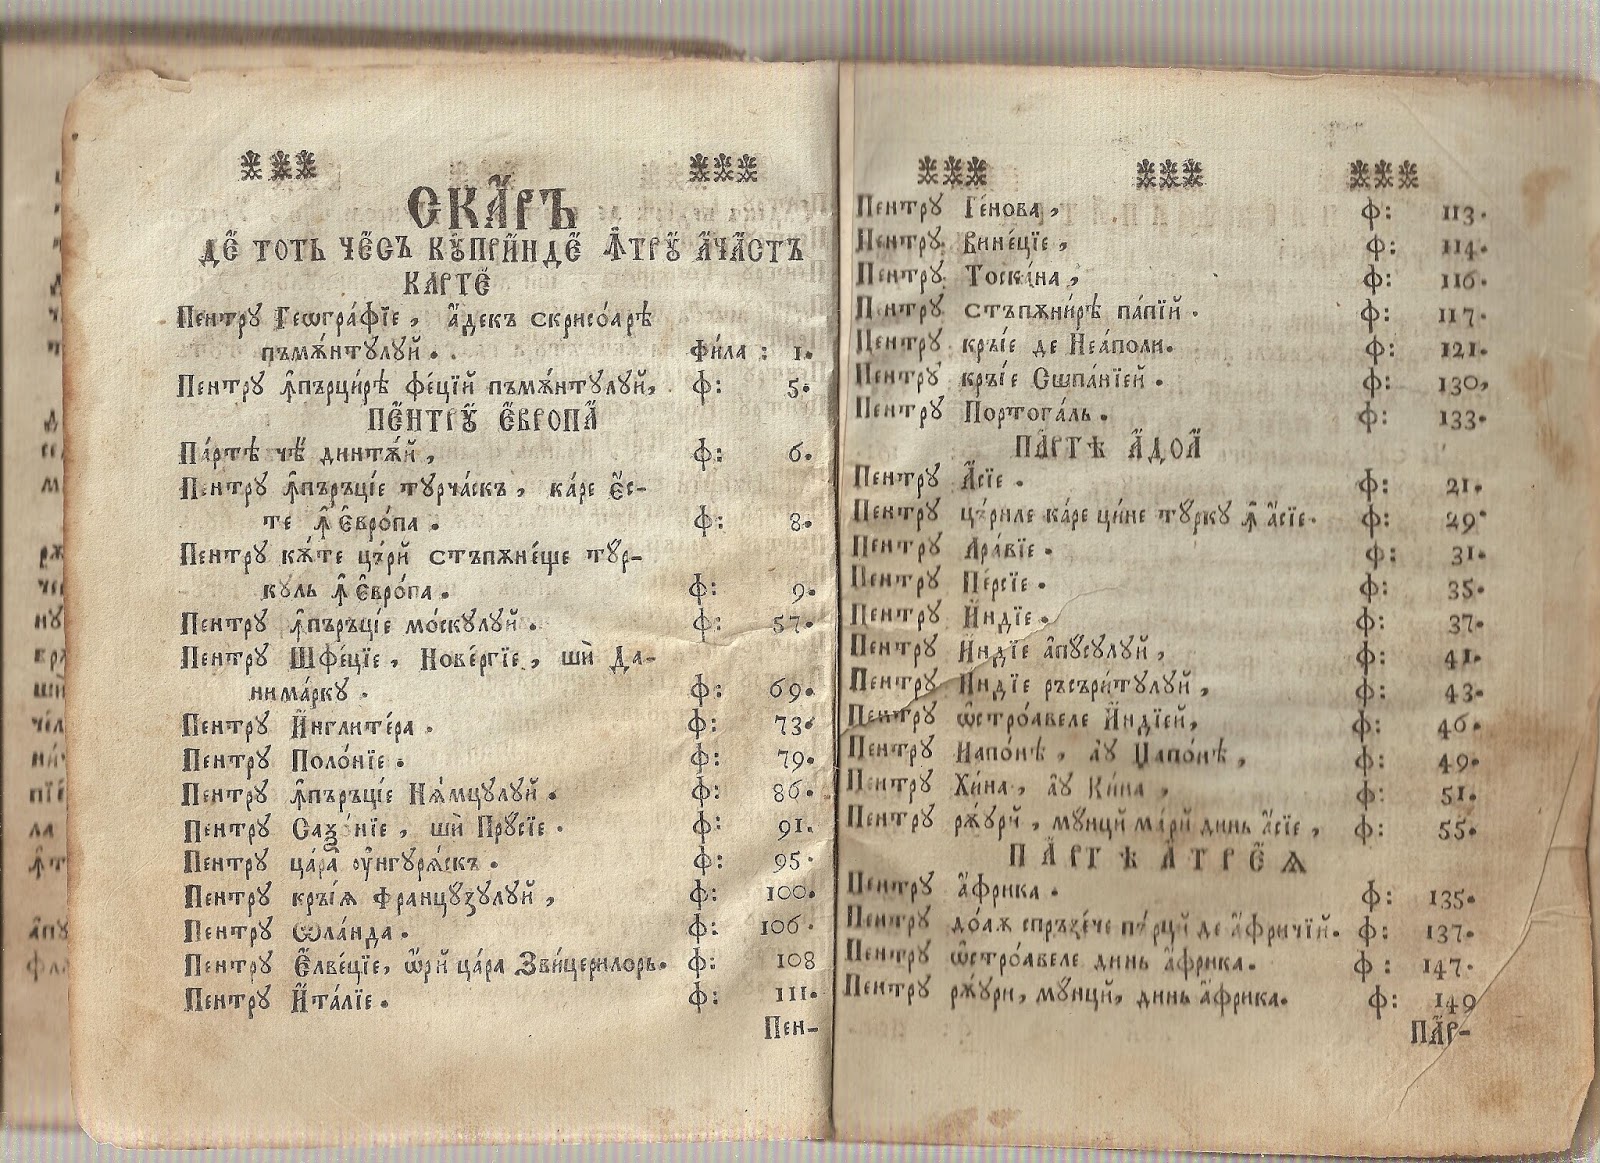 СКА́РЪ
ДЕ҆ ТОТЬ ЧЕ҆СЪ КꙊПРИ҆НДЕ҆ Ꙟ҆ТРꙊ҆ А҆ЧА҆СТЪ
КАРТЕ҆
Пентрꙋ Геѡгра́фїе , а҆декъ скрисоа́рѣ
пъмѫ́нтꙋлꙋй . фи́ла : 1.
Пентрꙋ ꙟ҆пърци́рѣ фе́ций пъмѫ́нтꙋлꙋй, ф: 5.
ПЕ҆НТРꙊ҆ Е҆ВРОПА҆
Па́ртѣ че҆ динтѫ́й , ф: 6.
Пентрꙋ ꙟ҆пъръцїе тꙋрча́скъ , ка́ре е҆с-
те ꙟ҆ Е҆вро́па . ф: 8.
Пентрꙋ кѫ́те цъ́рй стъпѫне́ще тꙋр-
кꙋль ꙟ҆ Е҆вро́па . ф: 9.
Пентрꙋ ꙟ҆пъръцїе мо́скꙋлꙋй . ф: 57.
Пентрꙋ Шфе́цїе , Нове́ргїе , шѝ Да-
нима́ркꙋ . ф: 69.
Пентрꙋ И҆нглите́ра . ф: 73.
Пентрꙋ Поло́нїе . ф: 79.
Пентрꙋ ꙟ҆пъръцїе Нѧ́мцꙋлꙋй . ф: 86.
Пентрꙋ Саѯо́нїе , шѝ Прꙋсїе . ф: 91.
Пентрꙋ ца́ра ᲂу҆нгꙋрѧ́скъ . ф: 95.
Пентрꙋ кръі́ѧ францꙋзꙋлꙋй , ф: 100.
Пентрꙋ Ѡла́нда . ф: 106.
Пентрꙋ Е҆лве́цїе, ѡ҆рй ца́ра Зви́церилорь. ф: 108
Пентрꙋ И҆та́лїе . ф: 111.
Пен-
Пентрꙋ Ге́нова , ф: 113.
Пентрꙋ Вине́цїе , ф: 114.
Пентрꙋ Тоска́на , ф: 116.
Пентрꙋ стъпѫни́рѣ па́пїй . ф: 117.
Пентрꙋ кръі́е де Неа́поли. ф: 121.
Пентрꙋ кръі́е Сшпа́нїей . ф: 130,
Пентрꙋ Портога́ль . ф: 133.
ПА҆РТѢ А҆ДОА҆
Пентрꙋ А҆сїе . ф: 21.
Пентрꙋ цъ́риле ка́ре ци́не тꙋркꙋ ꙟ҆ а҆сїе. ф: 29.
Пентрꙋ Ара́вїе . ф: 31.
Пентрꙋ Пе́рсїе . ф: 35.
Пентрꙋ И҆ндїе . ф: 37.
Пентрꙋ И҆ндїе а҆пꙋсꙋлꙋй , ф: 41.
Пентрꙋ И҆ндїе ръсъри́тꙋлꙋй , ф: 43.
Пентрꙋ ѡ҆строа́веле И҆ндїей, ф: 46.
Пентрꙋ Иапо́нѣ , аꙋ Џапо́нѣ , ф: 49.
Пентрꙋ Хи́на , аꙋ Ки́на , ф: 51.
Пентрꙋ рѫ́ꙋрй , мꙋнцй ма́рй динь а҆сїе , ф: 55.
ПА҆РТѢ А҆ТРЕ҆Ѧ
Пентрꙋ а҆фрика . ф: 135.
Пентрꙋ до́аѫ спръзе́че пъ́рцй де а҆фричїй. ф: 137.
Пентрꙋ ѡ҆строа́веле динь а҆фрика. ф : 147.
Пентрꙋ рѫ́ꙋри, мꙋнцй, динь а҆фрика. ф: 149
ПА҆Р-